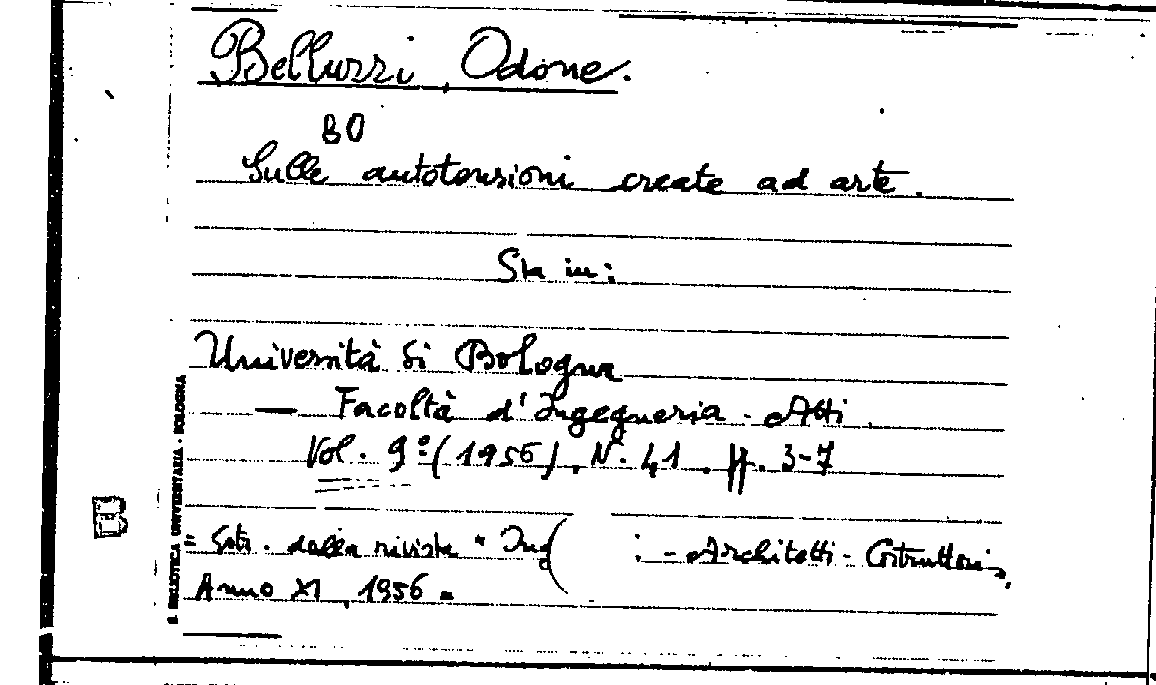 Belluzzi, Odone.
BO
Sulle autotensioni create ad arte.
Sta in:
Università di Bologna
— Facoltà d'Ingegneria - Atti
Vol. 9º (1956), N. 41. pp. 3-7
Estr. dalla rivista "Ing( : - Architetti - Costruttori",
Anno XI, 1956 =
B. BIBLIOTECA UNIVERSITARIA - BOLOGNA
B